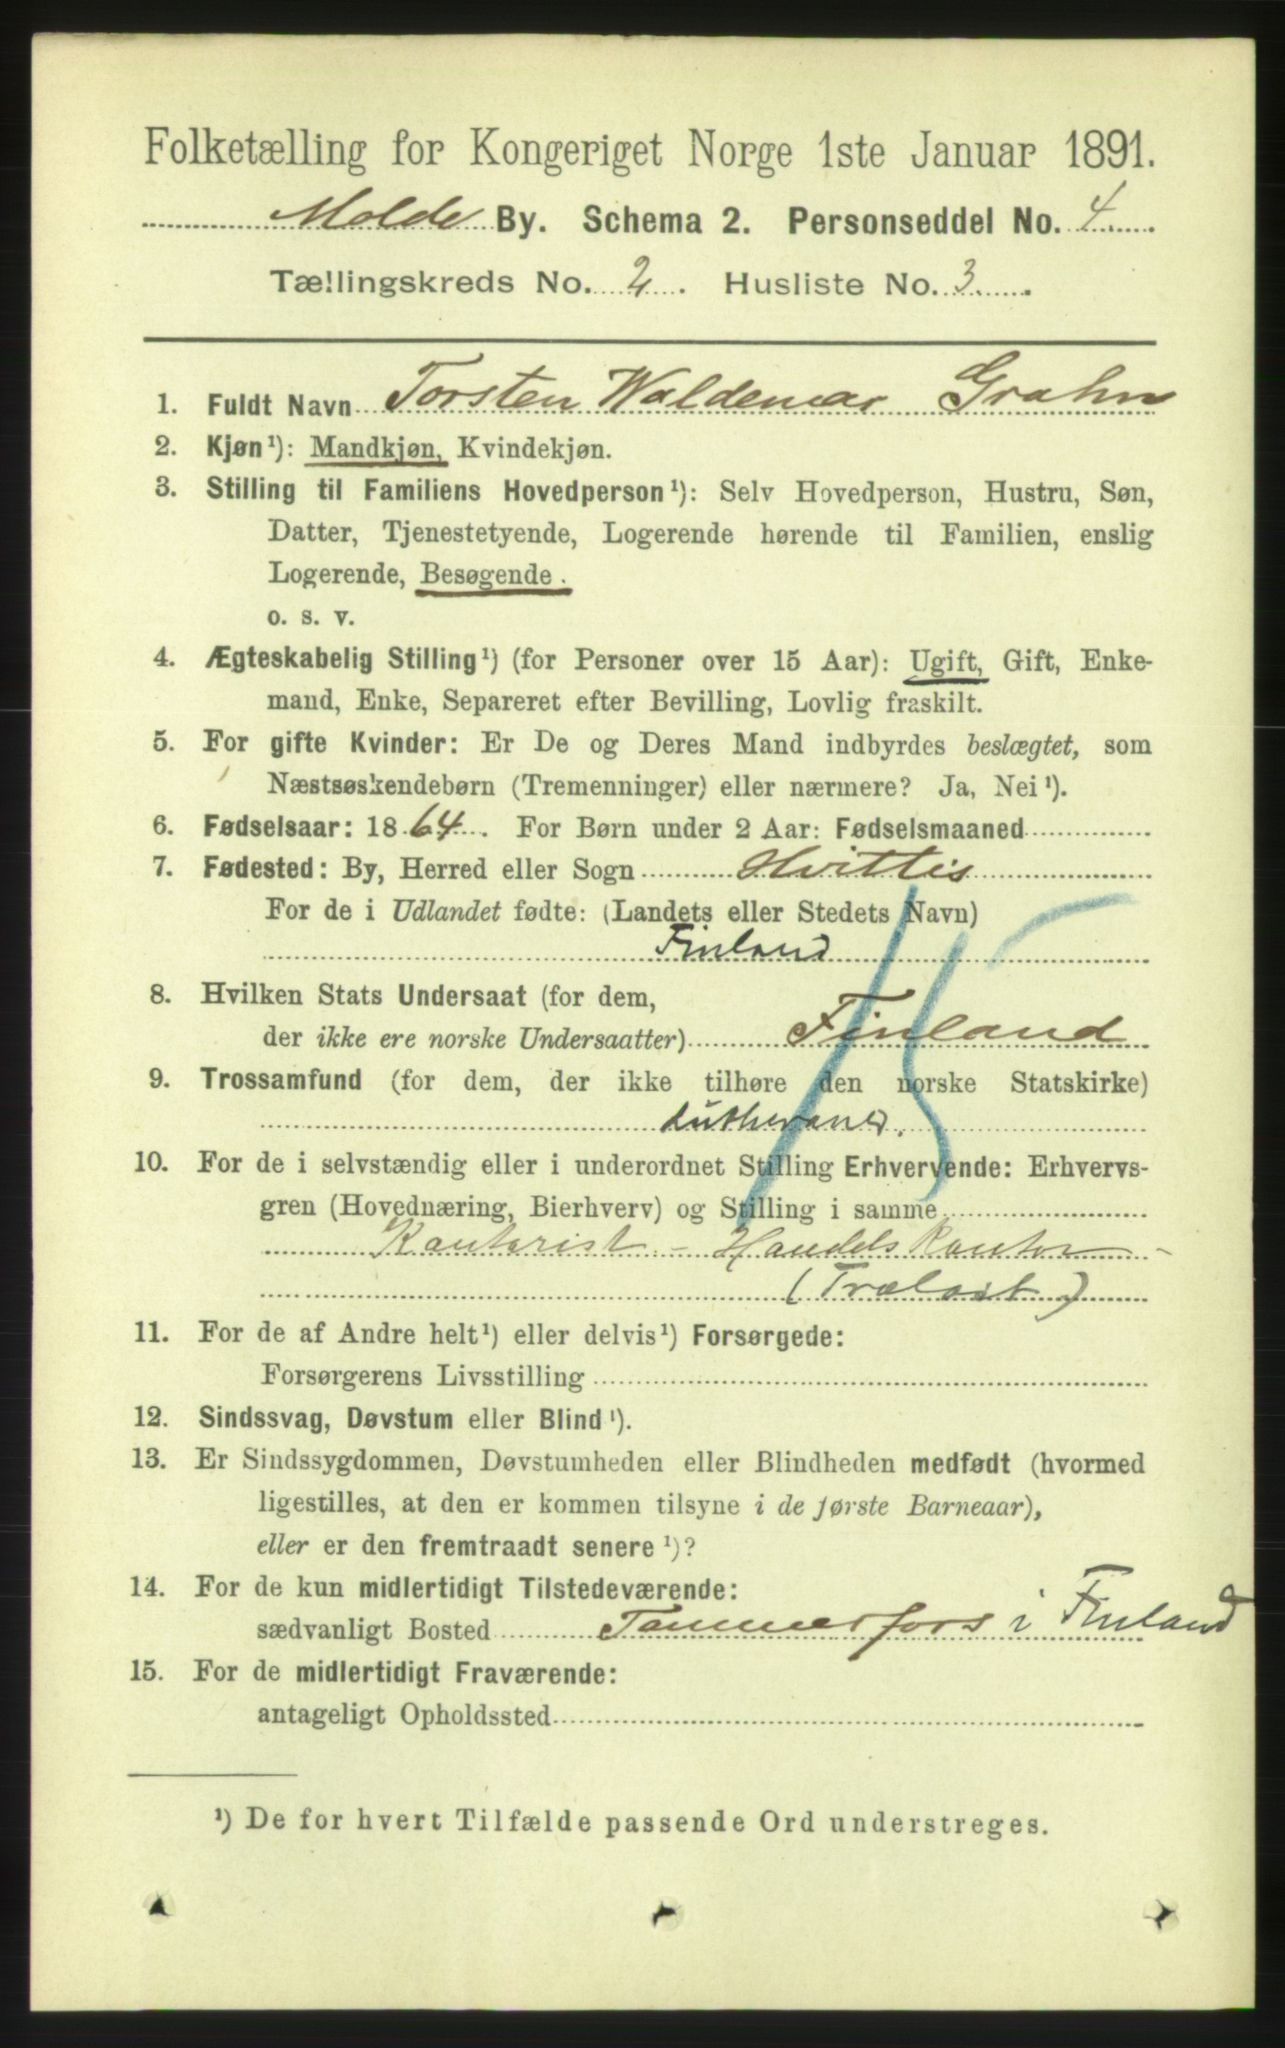 Folketælling for Kongeriget Norge 1ste Januar 1891.
Molde By. Schema 2. Personseddel No. 4
Tællingskreds No. 2. Husliste No. 3
1. Fuldt Navn Torsten Waldemar Grahn
2. Kjøn¹): Mandkjøn, Kvindekjøn.
3. Stilling til Familiens Hovedperson¹): Selv Hovedperson, Hustru, Søn,
Datter, Tjenestetyende, Logerende hørende til Familien, enslig
Logerende, Besøgende.
o. s. v.
4. Ægteskabelig Stilling¹) (for Personer over 15 Aar): Ugift, Gift, Enke-
mand, Enke, Separeret efter Bevilling, Lovlig fraskilt.
5. For gifte Kvinder: Er De og Deres Mand indbyrdes beslægtet, som
Næstsøskendebørn (Tremenninger) eller nærmere? Ja, Nei¹).
6. Fødselsaar: 1864. For Børn under 2 Aar: Fødselsmaaned
7. Fødested: By, Herred eller Sogn Hvittis
For de i Udlandet fødte: (Landets eller Stedets Navn)
Finland
8. Hvilken Stats Undersaat (for dem,
der ikke ere norske Undersaatter) Finland
9. Trossamfund (for dem, der ikke tilhøre den norske Statskirke)
Lutheraner.
15
10. For de i selvstændig eller i underordnet Stilling Erhvervende: Erhvervs-
gren (Hovednæring, Bierhverv) og Stilling i samme
Kontorist - Handelskontor -
(Trælast)
11. For de af Andre helt¹) eller delvis¹) Forsørgede:
Forsørgerens Livsstilling
12. Sindssvag, Døvstum eller Blind¹).
13. Er Sindssygdommen, Døvstumheden eller Blindheden medfødt (hvormed
ligestilles, at den er kommen tilsyne i de første Barneaar),
eller er den fremtraadt senere¹)?
14. For de kun midlertidigt Tilstedeværende:
sædvanligt Bosted Tammerfors i Finland
15. For de midlertidigt Fraværende:
antageligt Opholdssted
¹) De for hvert Tilfælde passende Ord understreges.